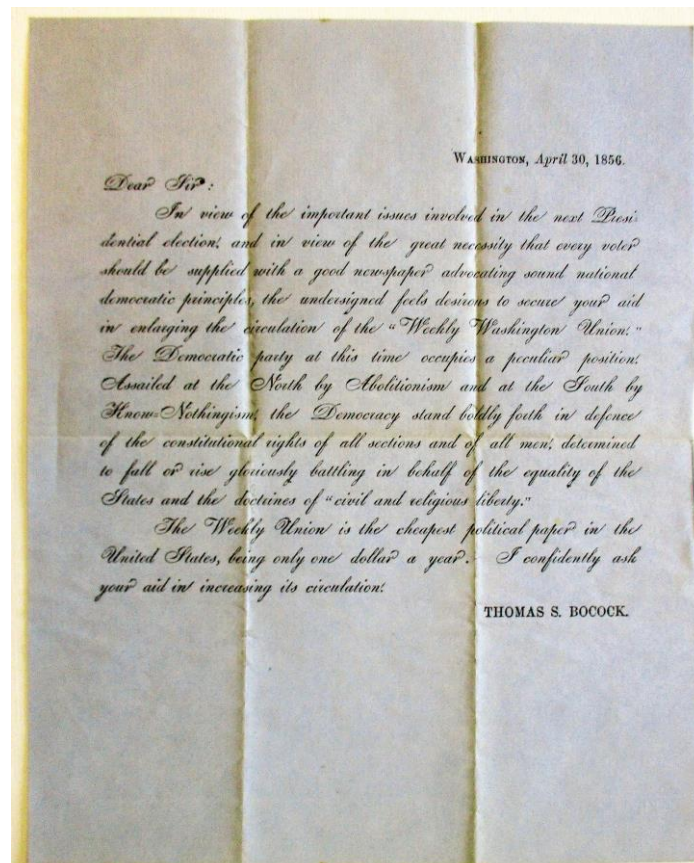 Washington, April 30, 1856.
Dear Sir:
In view of the important issues involved in the next Presi
dential election, and in view of the great necessity that every voter
should be supplied with a good newspaper advocating sound national
democratic principles, the undersigned feels desirous to secure your aid
in enlarging the circulation of the "Weekly Washington Union."
The Democratic party at this time occupies a peculiar position.
Assailed at the North by Abolitionism and at the South by
Know-Nothingism, the Democracy stand boldly forth in defence
of the constitutional rights of all sections and of all men, determined
to fall or rise gloriously battling in behalf of the equality of the
States and the doctrines of "civil and religious liberty."
The Weekly Union is the cheapest political paper in the
United States, being only one dollar a year. I confidently ask
your aid in increasing its circulation.
THOMAS S. BOCOCK.